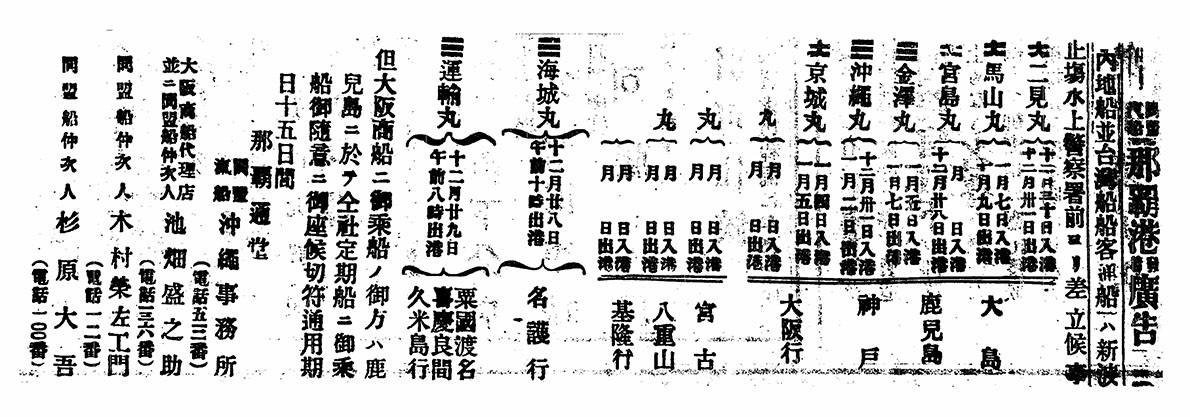 同盟汽船那覇港廣告
內地船並台灣船船客艀船ハ新波
止塲水上警察署前ヨリ差立候事
二見丸 十二月三十日入港 十二月卅一日出港
馬山丸 一月七日入港 一月九日出港
宮島丸 月 日入港 十二月廿八日出港
金澤丸 一月五日入港 一月七日出港
沖繩丸 十二月卅一日入港 一月二日出港
京城丸 一月四日入港 一月五日出港
丸 月 日入港 月 日出港
大島
鹿兒島
神戶
大阪行
丸 月 日入港 月 日出港 宮古
丸 月 日入港 月 日出港 八重山
月 日入港 月 日出港 基隆行
海城丸 十二月廿八日 午前十時出港 名護行
運輸丸 十二月廿九日 午前八時出港 粟國渡名喜慶良間久米島行
但大阪商船ニ御乘船ノ御方ハ鹿
兒島ニ於テ仝社定期船ニ御乘
船御隨意ニ御座候切符通用期
日十五日間
那覇通堂
同盟汽船 沖繩事務所
(電話五二番)
大阪商船代理店
並ニ同盟船仲次人 池畑盛之助
(電話三六番)
同盟船仲次人 木村榮左工門
(電話一二番)
同盟船仲次人 杉原大吾
(電話一〇〇番)